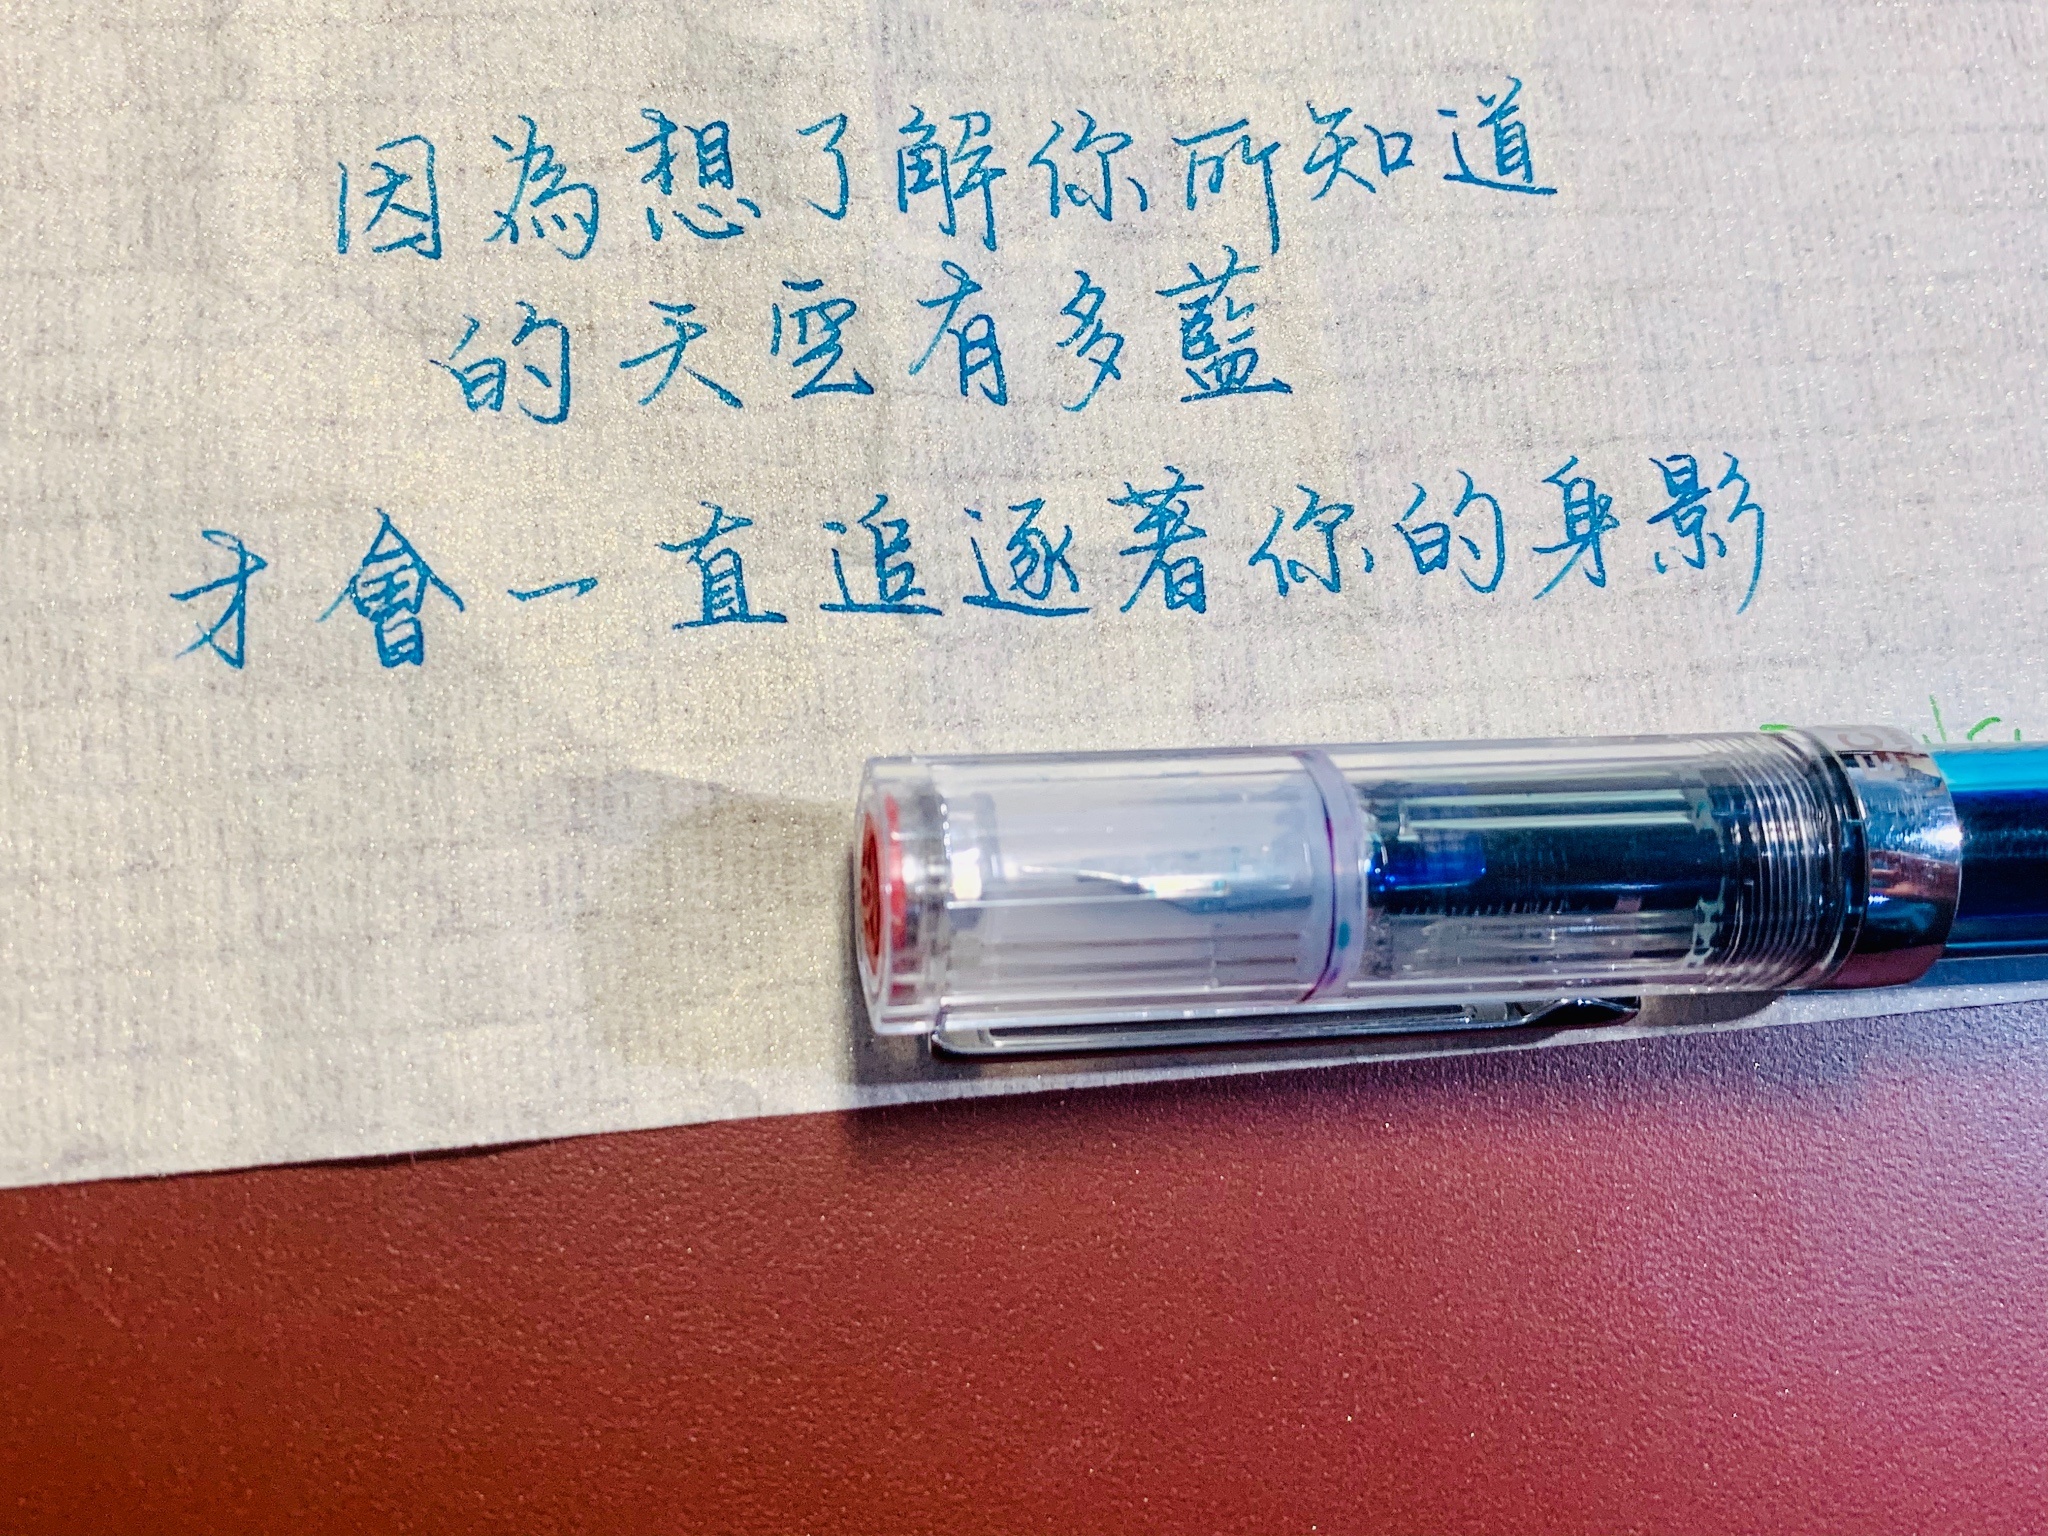 因為想了解你所知道
的天空有多藍
才會一直追逐著你的身影